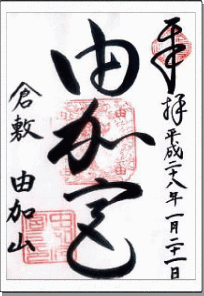 奉拝 平成二十八年一月二十一日
由加宮
倉敷 由加山